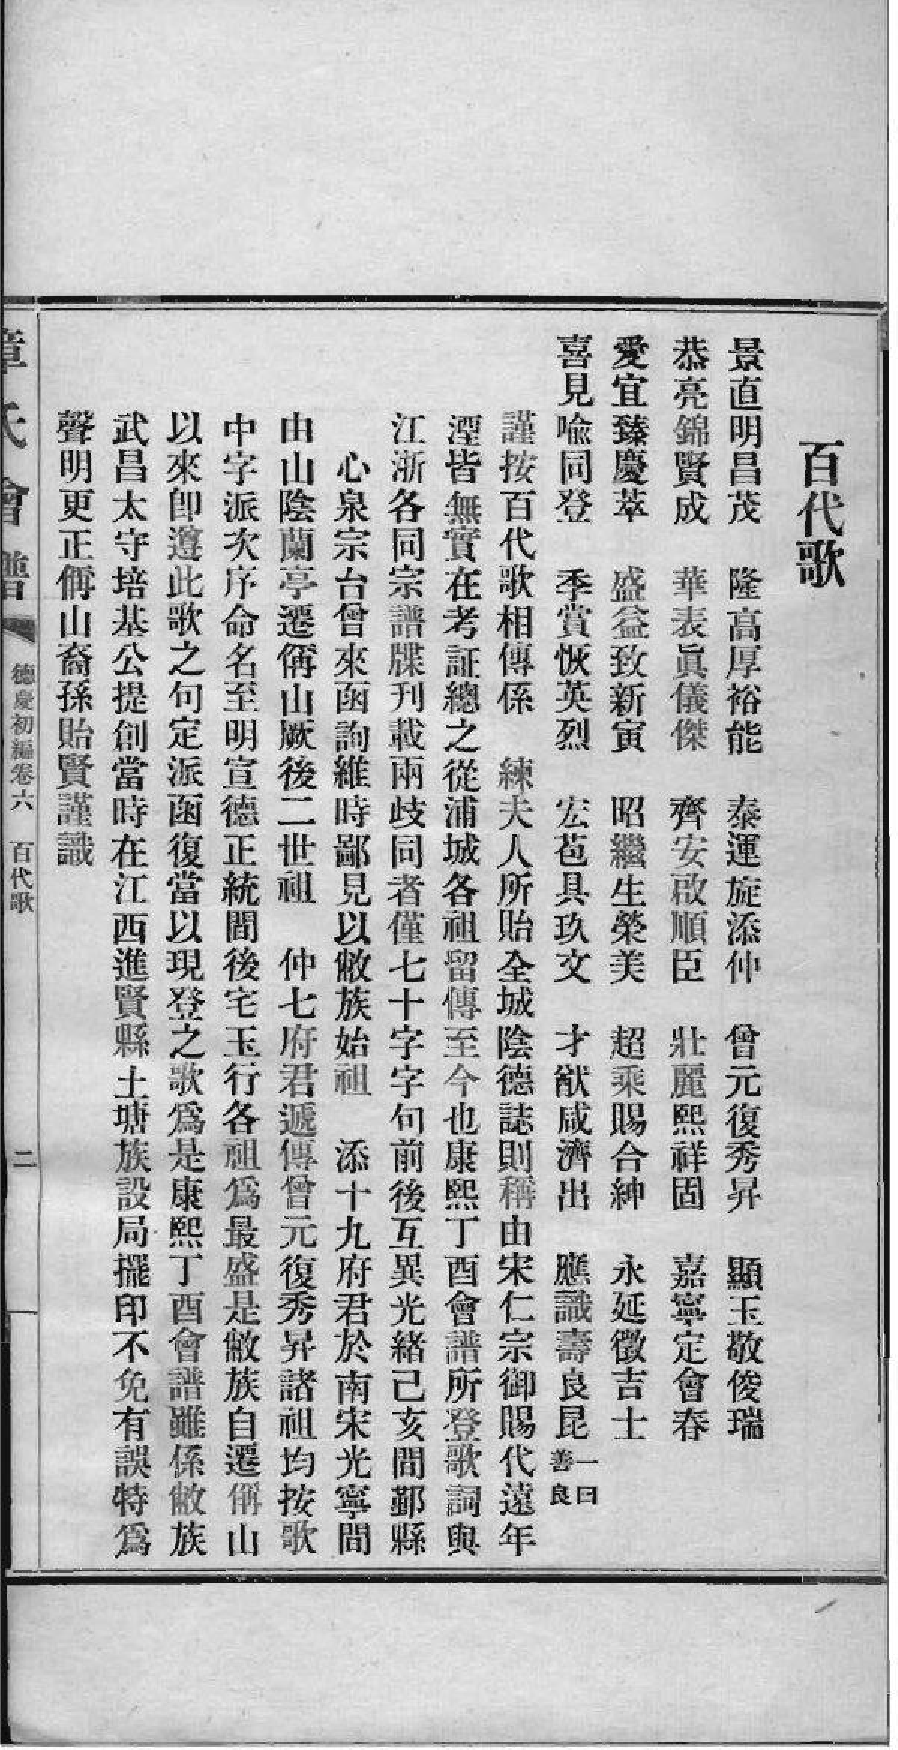 百代歌
景直明昌茂　隆高厚裕能　泰運旋添仲　曾元復秀昇　顯玉敬俊瑞
恭亮錦賢成　華表眞儀傑　齊安啟順臣　壯麗熙祥固　嘉寧定會春
愛宜臻慶萃　盛益致新寅　昭繼生榮美　超乘賜合紳　永延徵吉士
喜見喩同登　季賞恢英烈　宏苞具玖文　才猷咸濟出　應識壽良昆 一曰善良
謹按百代歌相傳係　練夫人所貽全城陰德誌則稱由宋仁宗御賜代遠年
湮皆無實在考証總之從浦城各祖留傳至今也康熙丁酉會譜所登歌詞與
江浙各同宗譜牒刊載兩歧同者僅七十字字句前後互異光緒己亥間鄞縣
心泉宗台曾來函詢維時鄙見以敝族始祖　添十九府君於南宋光寧間
由山陰蘭亭遷偁山厥後二世祖　仲七府君遞傳曾元復秀昇諸祖均按歌
中字派次序命名至明宣德正統間後宅玉行各祖爲最盛是敝族自遷偁山
以來卽遵此歌之句定派函復當以現登之歌爲是康熙丁酉會譜雖係敝族
武昌太守培基公提創當時在江西進賢縣土塘族設局擺印不免有誤特爲
聲明更正偁山裔孫貽賢謹識
章氏會譜　德慶初編卷六　百代歌　二